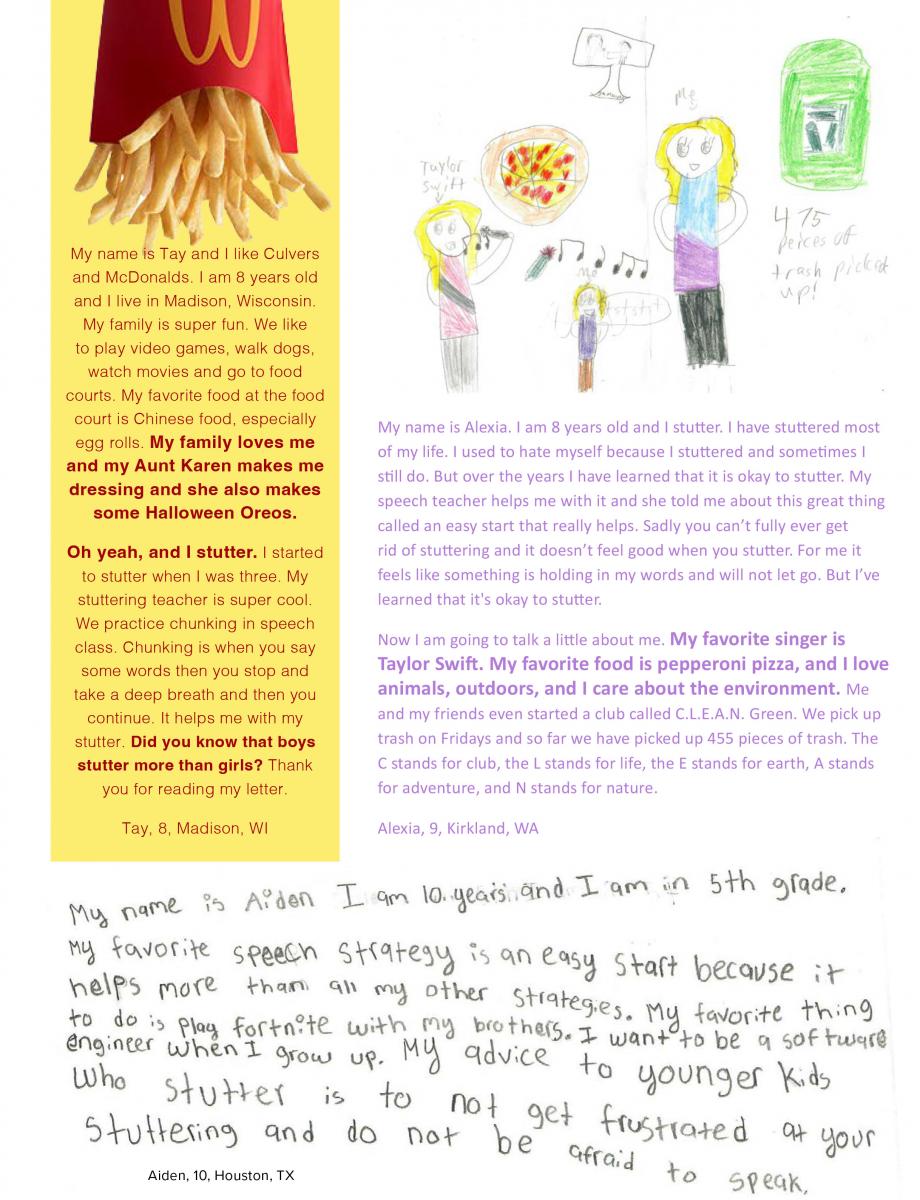 My name is Tay and I like Culvers
and McDonalds. I am 8 years old
and I live in Madison, Wisconsin.
My family is super fun. We like
to play video games, walk dogs,
watch movies and go to food
courts. My favorite food at the food
court is Chinese food, especially
egg rolls. My family loves me
and my Aunt Karen makes me
dressing and she also makes
some Halloween Oreos.
Oh yeah, and I stutter. I started
to stutter when I was three. My
stuttering teacher is super cool.
We practice chunking in speech
class. Chunking is when you say
some words then you stop and
take a deep breath and then you
continue. It helps me with my
stutter. Did you know that boys
stutter more than girls? Thank
you for reading my letter.
Tay, 8, Madison, WI
Me
Taylor
swift
me
475
peices of
trash picked
up!
My name is Alexia. I am 8 years old and I stutter. I have stuttered most
of my life. I used to hate myself because I stuttered and sometimes I
still do. But over the years I have learned that it is okay to stutter. My
speech teacher helps me with it and she told me about this great thing
called an easy start that really helps. Sadly you can't fully ever get
rid of stuttering and it doesn't feel good when you stutter. For me it
feels like something is holding in my words and will not let go. But I've
learned that it's okay to stutter.
Now I am going to talk a little about me. My favorite singer is
Taylor Swift. My favorite food is pepperoni pizza, and I love
animals, outdoors, and I care about the environment. Me
and my friends even started a club called C.L.E.A.N. Green. We pick up
trash on Fridays and so far we have picked up 455 pieces of trash. The
C stands for club, the L stands for life, the E stands for earth, A stands
for adventure, and N stands for nature.
Alexia, 9, Kirkland, WA
My name is Aiden I am 10 years and I am in 5th grade.
My favorite speech strategy is an easy start because it
helps more than all my other strategies. My favorite thing
to do is play fortnite with my brothers. I want to be a software
engineer when I grow up. My advice to younger kids
who stutter is to not get frustrated at your
stuttering and do not be afraid to speak.
Aiden, 10, Houston, TX